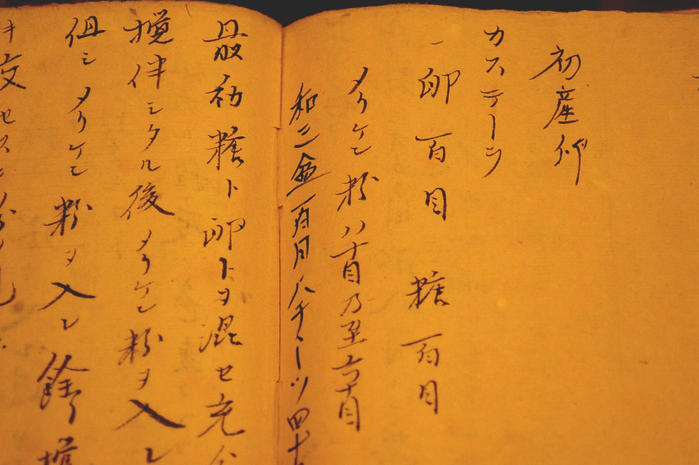 初産卵
カステーラ
一 卵 百目 糖 百目
メリケン粉 八十目乃至六十目
和三盆 百目 四十
最初糖ト卵トヲ混セ充分
攪伴シタル後メリケン粉ヲ入レ
但シメリケン粉ヲ入レ餘リ攪
キ交セ